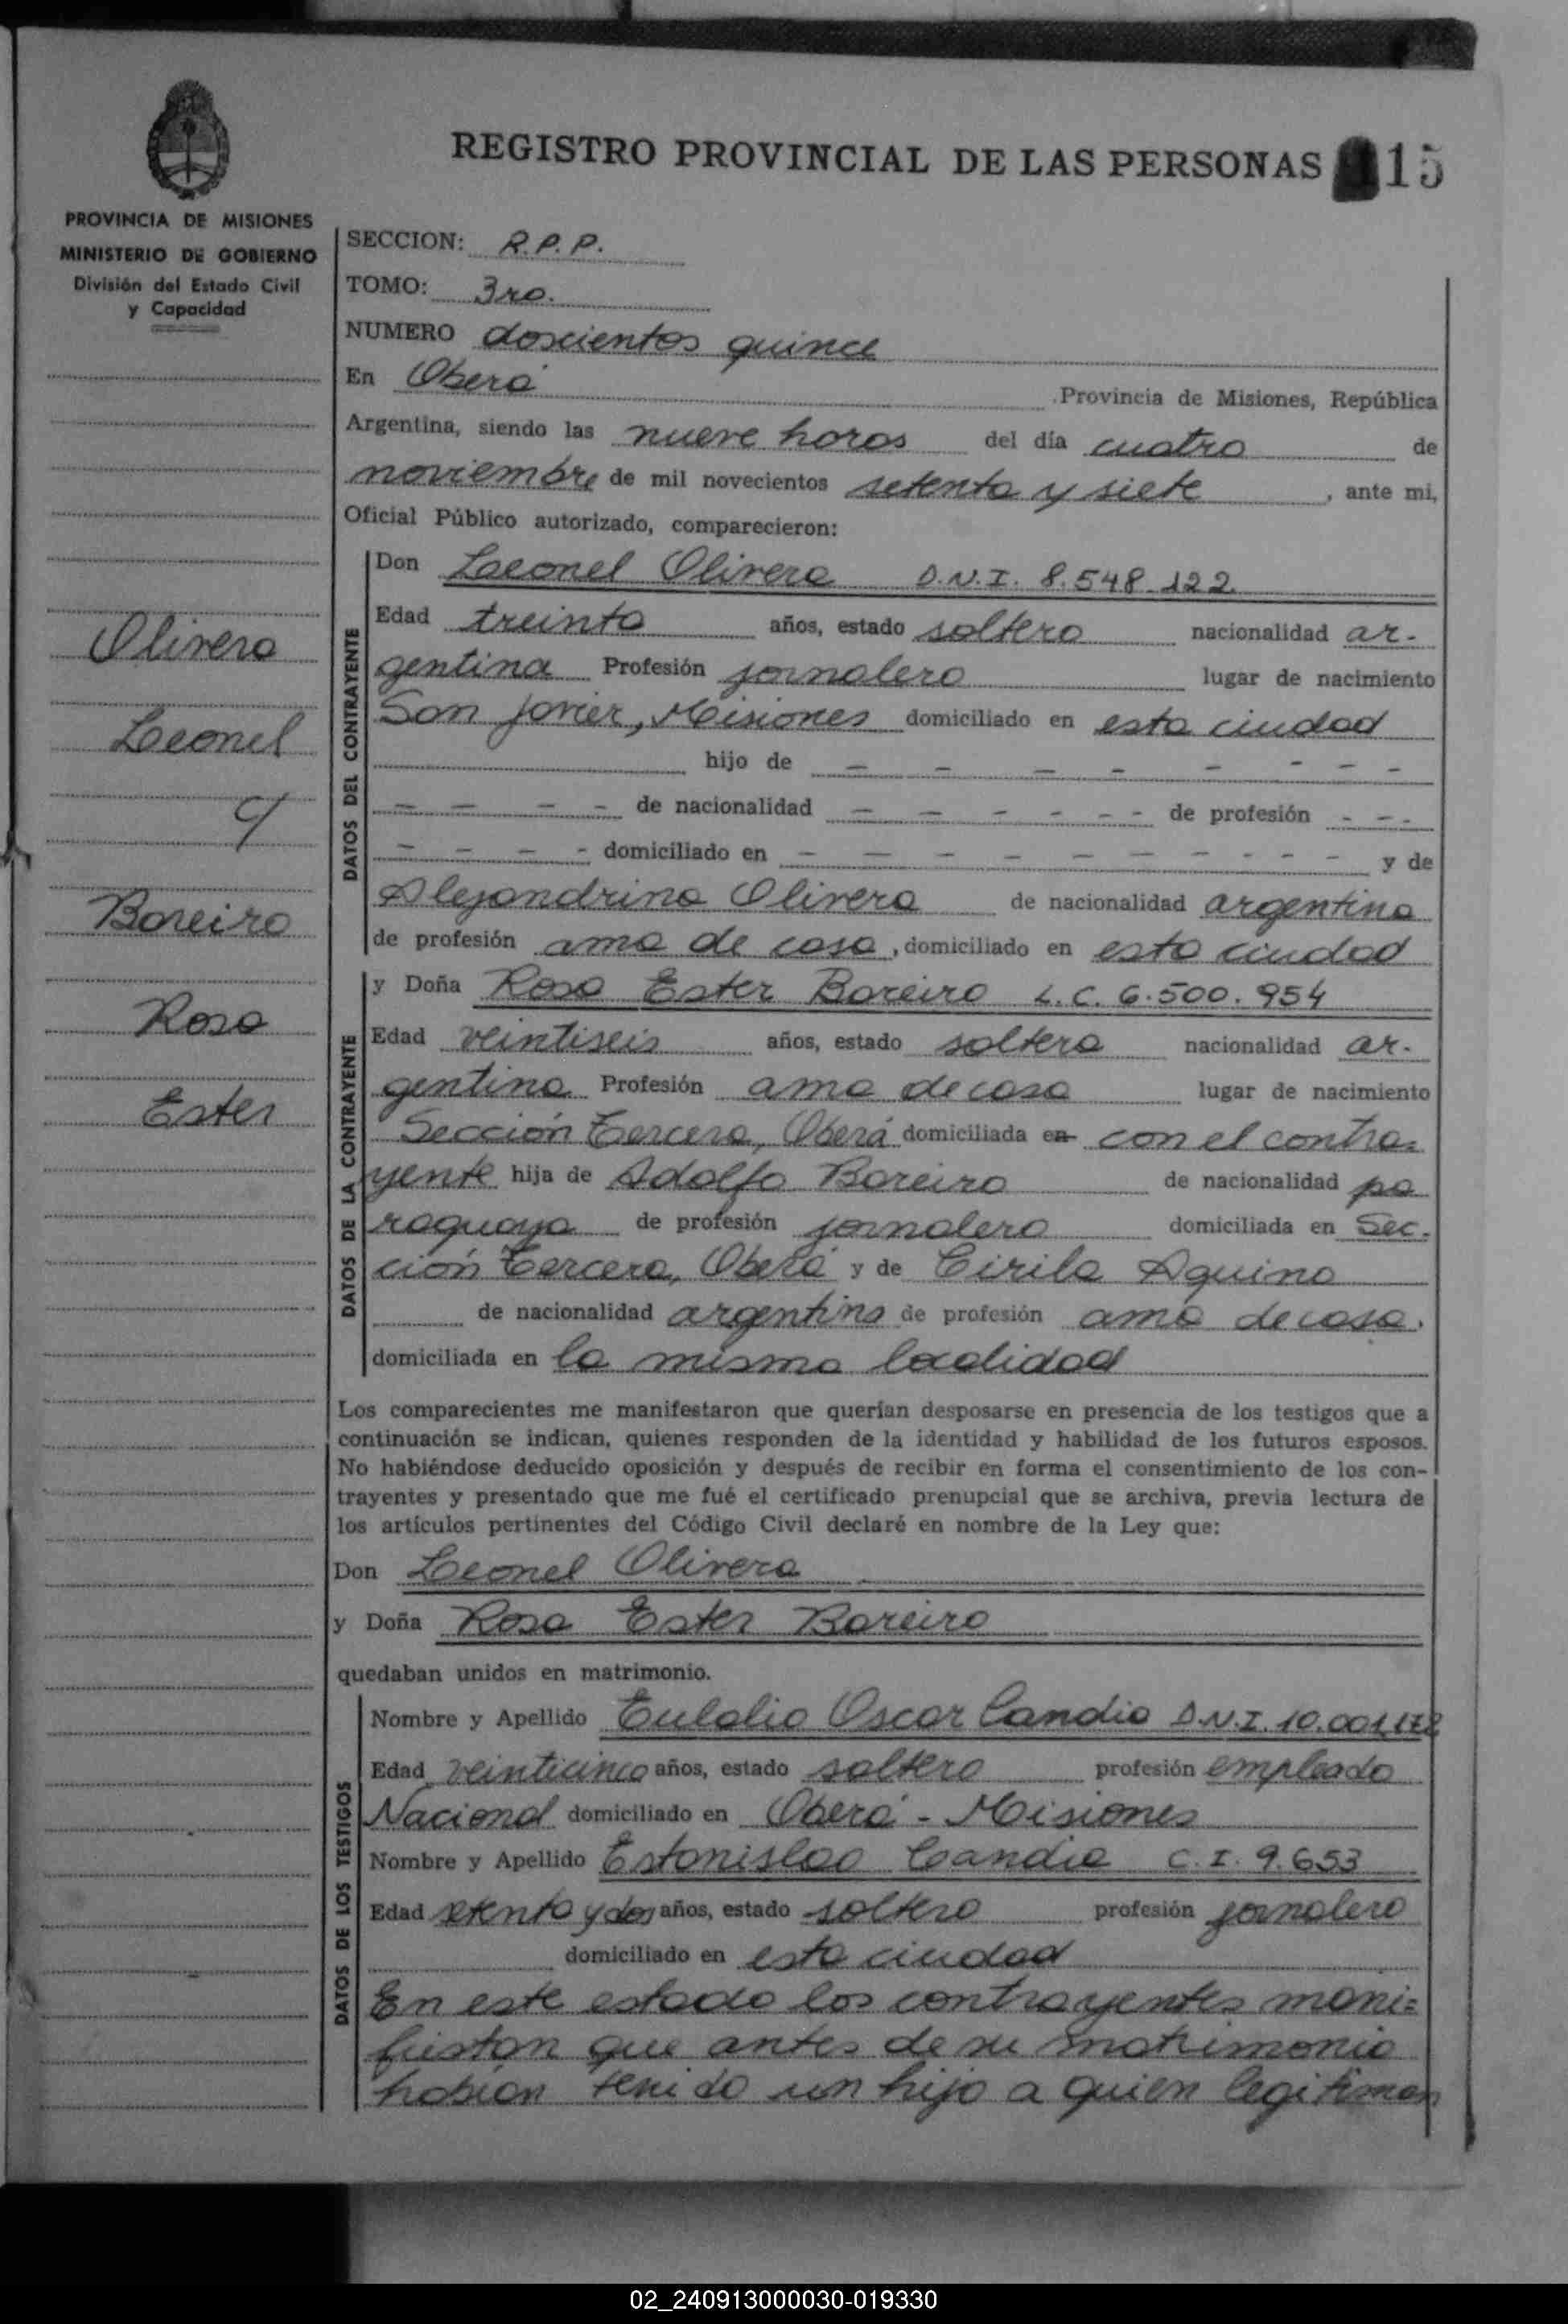 REGISTRO PROVINCIAL DE LAS PERSONAS 15
PROVINCIA DE MISIONES
MINISTERIO DE GOBIERNO
División del Estado Civil
y Capacidad
Olivera
Leonel
c/
Boreiro
Rosa
Ester
SECCION: R.P.P.
TOMO: 3ro.
NUMERO doscientos quince
En Oberá Provincia de Misiones, República
Argentina, siendo las nueve horas del día cuatro de
noviembre de mil novecientos setenta y siete, ante mi,
Oficial Público autorizado, comparecieron:
DATOS DEL CONTRAYENTE
Don Leonel Olivera D.N.I. 8.548.122
Edad treinta años, estado soltero nacionalidad ar-
gentina Profesión jornalero lugar de nacimiento
San Javier, Misiones domiciliado en esta ciudad
hijo de - - - - - - - -
- - - - de nacionalidad - - - - - - de profesión - - -
- - - - domiciliado en - - - - - - - - - - y de
Alejandrina Olivera de nacionalidad argentina
de profesión ama de casa, domiciliado en esta ciudad
DATOS DE LA CONTRAYENTE
y Doña Rosa Ester Boreiro L.C. 6.500.954
Edad veintiseis años, estado soltera nacionalidad ar-
gentina Profesión ama de casa lugar de nacimiento
Sección Tercera, Oberá domiciliada en con el contra=
yente hija de Adolfo Boreiro de nacionalidad pa
raguaya de profesión jornalero domiciliada en Sec-
ción Tercera, Oberá y de Cirila Aquino
de nacionalidad argentina de profesión ama de casa.
domiciliada en la misma localidad
Los comparecientes me manifestaron que querían desposarse en presencia de los testigos que a
continuación se indican, quienes responden de la identidad y habilidad de los futuros esposos.
No habiéndose deducido oposición y después de recibir en forma el consentimiento de los con-
trayentes y presentado que me fué el certificado prenupcial que se archiva, previa lectura de
los artículos pertinentes del Código Civil declaré en nombre de la Ley que:
Don Leonel Olivera
y Doña Rosa Ester Boreiro
quedaban unidos en matrimonio.
DATOS DE LOS TESTIGOS
Nombre y Apellido Eulalio Oscar Candia D.N.I. 10.001.172
Edad veinticinco años, estado soltero profesión empleado
Nacional domiciliado en Oberá - Misiones
Nombre y Apellido Estanislao Candia C.I. 9.653
Edad setenta y dos años, estado soltero profesión jornalero
domiciliado en esta ciudad
En este estado los contrayentes mani=
fiestan que antes de su matrimonio
habian tenido un hijo a quien legitiman
02_240913000030-019330